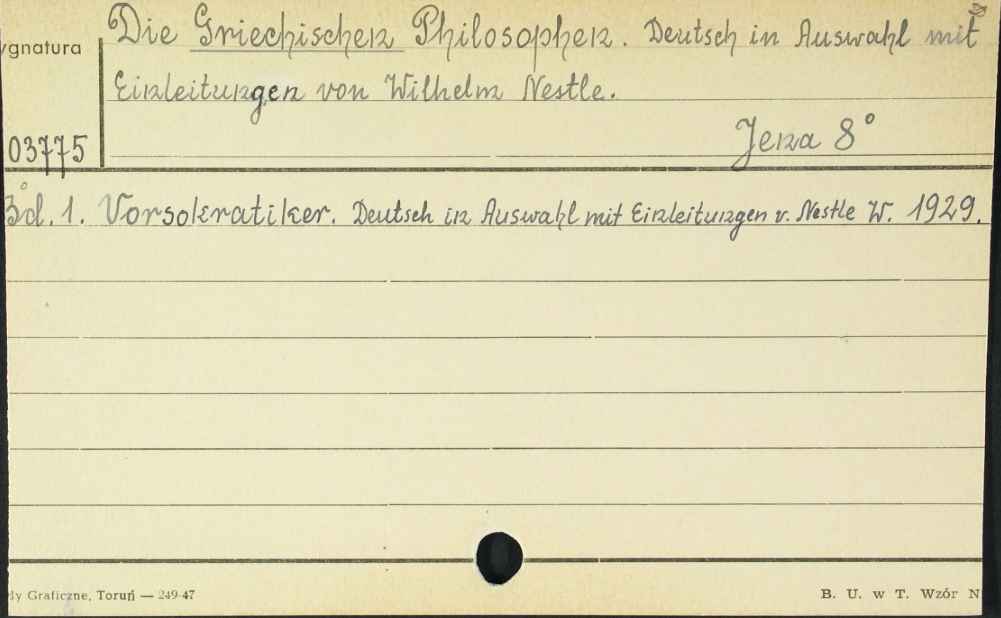 Die Griechischen Philosophen. Deutsch in Auswahl mit
ygnatura
Einleitungen von Wilhelm Nestle.
03775
Jena 8°
Bd. 1. Vorsokratiker. Deutsch in Auswahl mit Einleitungen v. Nestle W. 1929.
dy Graficzne, Toruń — 249-47
B. U. w T. Wzór N